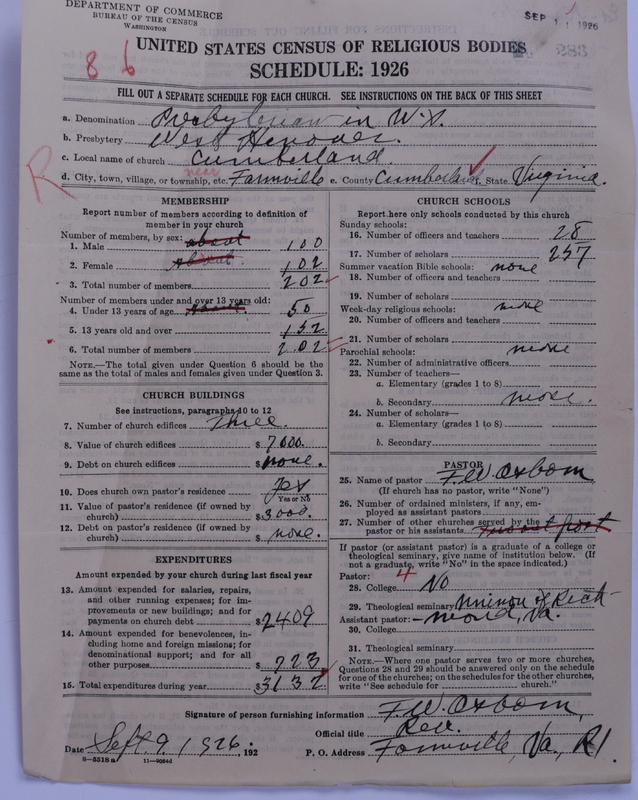 DEPARTMENT OF COMMERCE
BUREAU OF THE CENSUS
WASHINGTON
SEP 11 1926
8 6
UNITED STATES CENSUS OF RELIGIOUS BODIES
SCHEDULE: 1926
FILL OUT A SEPARATE SCHEDULE FOR EACH CHURCH. SEE INSTRUCTIONS ON THE BACK OF THIS SHEET
a. Denomination Presbyterian in U.S.
b. Presbytery West Hanover.
c. Local name of church Cumberland.
R
near
d. City, town, village, or township, etc. Farmville e. County Cumberland f. State Virginia.
MEMBERSHIP
Report number of members according to definition of member in your church
Number of members, by sex: about
1. Male 100
2. Female About 102
3. Total number of members 202
Number of members under and over 13 years old:
4. Under 13 years of age about 50
5. 13 years old and over 152
6. Total number of members 202
NOTE.—The total given under Question 6 should be the
same as the total of males and females given under Question 3.
CHURCH BUILDINGS
See instructions, paragraphs 10 to 12
7. Number of church edifices Three.
8. Value of church edifices $ 7000.
9. Debt on church edifices $ none.
10. Does church own pastor's residence yes
Yes or No
11. Value of pastor's residence (if owned by
church) $ 3000.
12. Debt on pastor's residence (if owned by
church) $ none.
EXPENDITURES
Amount expended by your church during last fiscal year
13. Amount expended for salaries, repairs,
and other running expenses; for im-
provements or new buildings; and for
payments on church debt $ 2409
14. Amount expended for benevolences, in-
cluding home and foreign missions; for
denominational support; and for all
other purposes $ 723
15. Total expenditures during year $ 3132
CHURCH SCHOOLS
Report here only schools conducted by this church
Sunday schools:
16. Number of officers and teachers 28
17. Number of scholars 257
Summer vacation Bible schools: none
18. Number of officers and teachers
19. Number of scholars
Week-day religious schools: none
20. Number of officers and teachers
21. Number of scholars
Parochial schools: none
22. Number of administrative officers
23. Number of teachers—
a. Elementary (grades 1 to 8)
b. Secondary none.
24. Number of scholars—
a. Elementary (grades 1 to 8)
b. Secondary
PASTOR
25. Name of pastor F.W. Osborn
(If church has no pastor, write "None")
26. Number of ordained ministers, if any, em-
ployed as assistant pastors
27. Number of other churches served by the
pastor or his assistants.
If pastor (or assistant pastor) is a graduate of a college or
theological seminary, give name of institution below. (If
not a graduate, write "No" in the space indicated.)
Pastor: 4
28. College No
29. Theological seminary Union of Rich-
Assistant pastor: - mond, Va.
30. College
31. Theological seminary
NOTE.—Where one pastor serves two or more churches,
Questions 28 and 29 should be answered only on the schedule
for one of the churches; on the schedules for the other churches,
write "See schedule for church."
Signature of person furnishing information F.W. Osborn,
Official title Rev.
Date Sept. 9, 1926. , 192 P. O. Address Farmville, Va., R1.
8—5518a 11—9064d